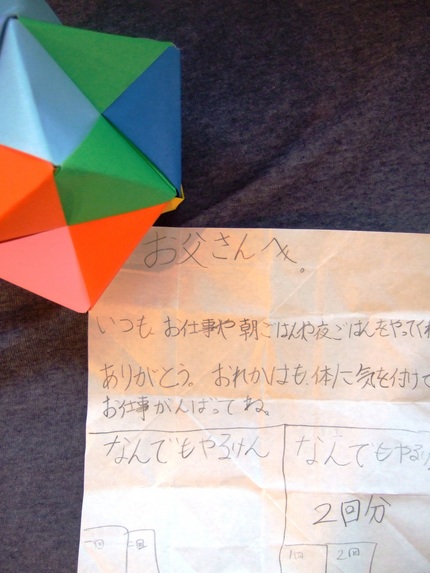 お父さんへ。
いつも、お仕事や朝ごはんや夜ごはんをやってくれ
ありがとう。おれかはも、体に気を付けて
お仕事がんばってね。
なんでもやるけん
なんでもやるけ
2回分
1回
2回